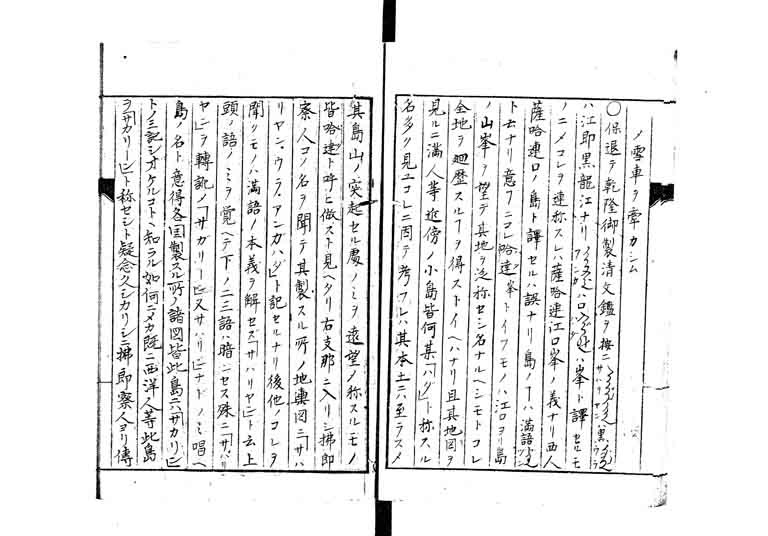 ノ雪車ヲ牽カシム
〇保退テ乾隆御製清文鑑ヲ按ニサハリヤンハ黒ウラ
ハ江即黒龍江ナリハロハハ峯ト訳セルモ
ノニメコレヲ連称スレハ薩哈連江口峯ノ義ナリ西人
薩哈連口ノ島ト譯セルハ誤ナリ島ノヿハ満語
ト云ナリ意フニコレ哈達峯トイフモノハ江口ヨリ島
ノ山峯ヲ望テ其地ヲ泛称セシ名ナルヘシモトコレ
全地ヲ廻歴スルヿヲ得ストイヘハナリ且其地図ヲ
見ルニ満人等近傍ノ小島皆何某「ハダ」ト称スル
名多ク見ユコレニ因テ考フレハ其本土ニハ至ラスメ
其島山ノ突起セル處ノミヲ遠望ノ称スルモノ
皆哈達ト呼ヒ做スト見ヘタリ右支那ニ入リシ拂郎
察人コノ名ヲ聞テ其製スル所ノ地輿図ニ「サハ
リヤン、ウラ、アンガハダ」ト記セルナリ後他ノコレヲ
聞クモノハ満語ノ本義ヲ解セズ「サハリヤヒ」ト云上
頭ノ語ノミヲ覚ヘテ下ノ二三語ハ暗ンセス殊ニ「サハリ
ヤン」ヲ轉訛ノ「サガリーヒ」又サハリヒ」ナドノミ唱ヘ
島ノ名ト意得各国製スル所ノ諸図皆此島ニハ「サカリヒ」
トノミ記シオケルコト知ラル如何ニメカ既ニ西洋ノ人等此島
ヲ「サカリーヒ」ト称セシト疑念久シカリシニ拂郎察人ヨリ傳